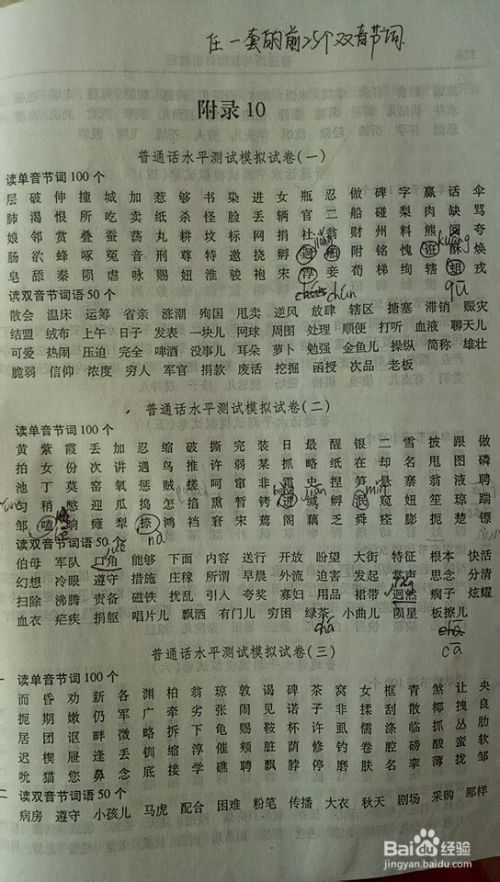 任一套的前25个双音节词
附录10
普通话水平测试模拟试卷(一)
读单音节词100个
层 破 伸 撞 城 加 惹 够 书 染 进 女 瓶 忍 做 碑 字 赢 话 伞
肺 渴 恨 所 吃 卖 纸 杀 怪 脸 丢 辆 官 二 船 碰 梨 肉 缺 骂
娘 邻 赏 叠 蚕 荡 丸 耕 坟 标 网 捐 社 翁 财 州 料 熊 阅 夸
肠 欲 蜂 啄 冤 音 刑 尊 特 邀 挠 孵 附 铭 愧 酥 焕
皂 舔 秦 陨 虐 咏 赐 妞 淮 骏 袍 宋 妾 荀 梯 绚 辖 戎
jiǒng
kuāng
chún
qū
读双音节词语50个
散会 温床 运筹 省亲 涨潮 殉国 甩卖 逆风 放肆 辖区 搪塞 滞销 赈灾
结盟 绒布 上午 日子 发表 一块儿 网球 周围 处理 顺便 打听 血液 聊天儿
可爱 热闹 压迫 完全 啤酒 没事儿 耳朵 萝卜 勉强 金鱼儿 操纵 简称 雄壮
脆弱 信仰 浓度 穷人 军官 捐款 废话 挖掘 函授 次品 老板
普通话水平测试模拟试卷(二)
读单音节词100个
黄 紫 霞 丢 加 忍 缩 破 撕 完 装 日 最 醒 银 二 雪 披 跟 做
拍 女 份 次 讲 遇 鸟 推 许 弱 某 抓 略 纸 在 却 名 甩 图 磷
池 丁 莫 窝 氧 惩 贼 搓 呵 窜 非 史 捏 笋 悬 寨 翁 液 聘
匀 稍 憋 迎 瓜 捣 怎 掐 熏 暂 铐 进 缄 孵 混 窥 妞 笙 琼 踹
邹 嗑 饷 瘫 犁 捺 鸿 裆 窘 宋 蔫 阁 藕 乏 舜 痉 膨 扼 楚 镖
nà
读双音节词语50个
伯母 军队 口角 能够 下面 内容 送行 开放 盼望 大街 特征 根本 快活
幻想 冷眼 遵守 措施 庄稼 所谓 早晨 外流 迫害 发起 掌声 思念 分清
扫除 沸腾 责备 磁铁 扰乱 引人 夸奖 寡妇 用品 裙带 迥然 疯子 炫耀
血衣 疟疾 捐躯 唱片儿 飘洒 有门儿 穷困 绿茶 小曲儿 陨星 板擦儿
chá
cā
普通话水平测试模拟试卷(三)
读单音节词100个
而 昏 劝 新 各 渊 柏 翁 琼 敦 谒 碑 茶 窝 女 框 青 煞 让 央
扼 期 嫩 仍 军 广 牵 劣 张 闹 见 诺 子 非 揉 刮 散 椰 拽 良
居 团 讴 畔 微 略 拆 下 龟 赐 鞍 杯 许 虽 儒 涤 临 抓 丛 肋
迟 楔 屉 逢 丢 钏 缩 淳 催 颊 脏 荫 修 钓 卷 腔 磅 酸 蛮 软
吮 猫 您 鼻 念 底 接 学 礁 聘 飘 脖 停 磨 肤 名 挛 薄 拢 邹
读双音节词语50个
病房 遵守 小孩儿 马虎 配合 困难 粉笔 传播 大衣 秋天 剧场 采购 那样
Baidu经验
jingyan.baidu.com